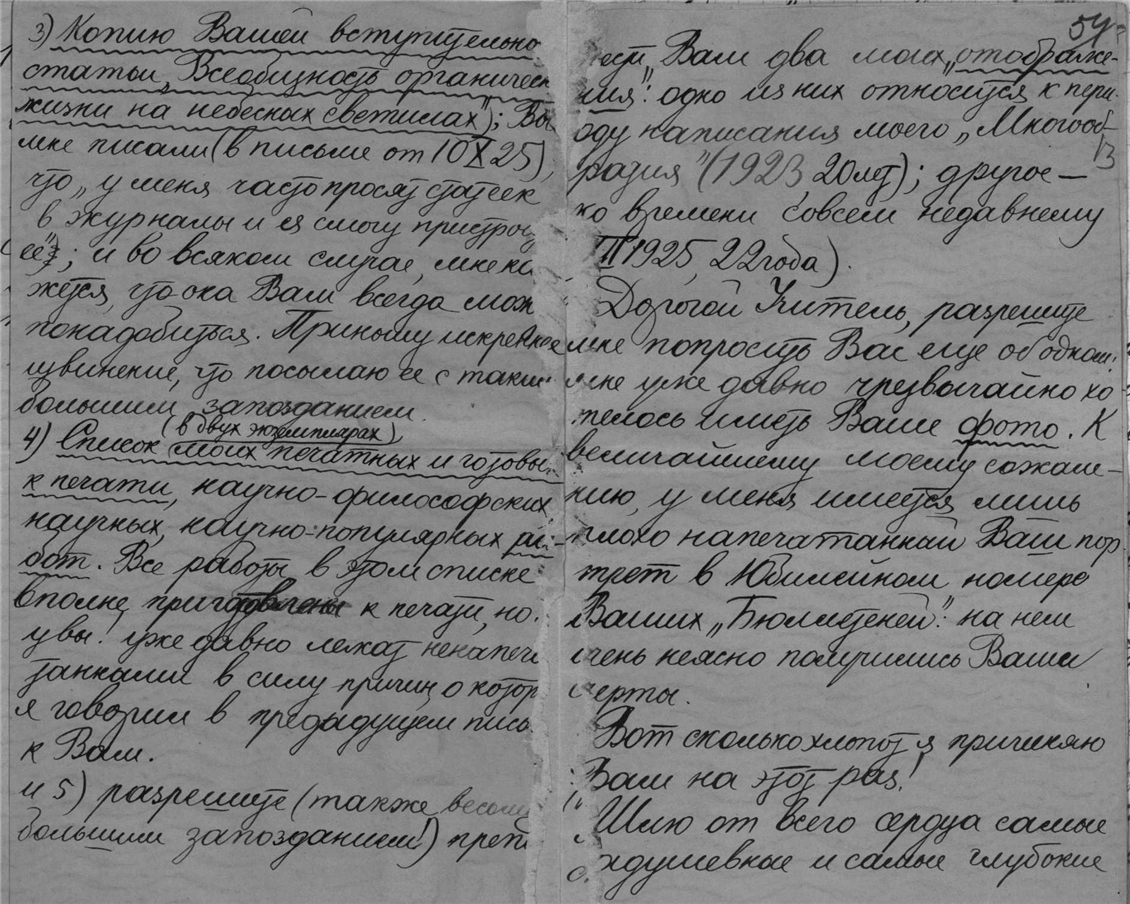 3) Копию Вашей вступительно
статьи „Всеобщность органическ
жизни на небесных светилах"); Вы
мне писали (в письме от 10 X 25),
что „у меня часто просят статеек
в журналы и я смогу пристрои
ее"; и во всяком случае, мне ка
жется, что она Вам всегда мож
понадобиться. Приношу искренне
извинение, что посылаю ее с таким
большим запозданием.
(в двух экземплярах)
4) Список моих печатных и готовы
к печати, научно-философских
научных, научно-популярных ра-
бот. Все работы в этом списке
вполне приготовлены к печати, но.
увы! уже давно лежат ненапеча
танными в силу причин, о котор
я говорил в предыдущем пись
к Вам.
и 5) разрешите (также весьма
большим запозданием!) препо
54
нести Вам два моих „отображе-
ния": одно из них относится к пери-
оду написания моего „Многооб-
разия" (1923, 20 лет); другое —
13
ко времени совсем недавнему
III 1925, 22 года).
Дорогой Учитель, разрешите
мне попросить Вас еще об одном:
мне уже давно чрезвычайно хо-
телось иметь Ваше фото. К
величайшему моему сожале-
нию, у меня имеется лишь
плохо напечатанный Ваш пор-
трет в Юбилейном номере
Ваших „Бюллетеней": на нем
очень неясно получились Ваши
черты.
Вот сколько хлопот я причиняю
Вам на этот раз!
Шлю от всего сердца самые
задушевные и самые глубокие